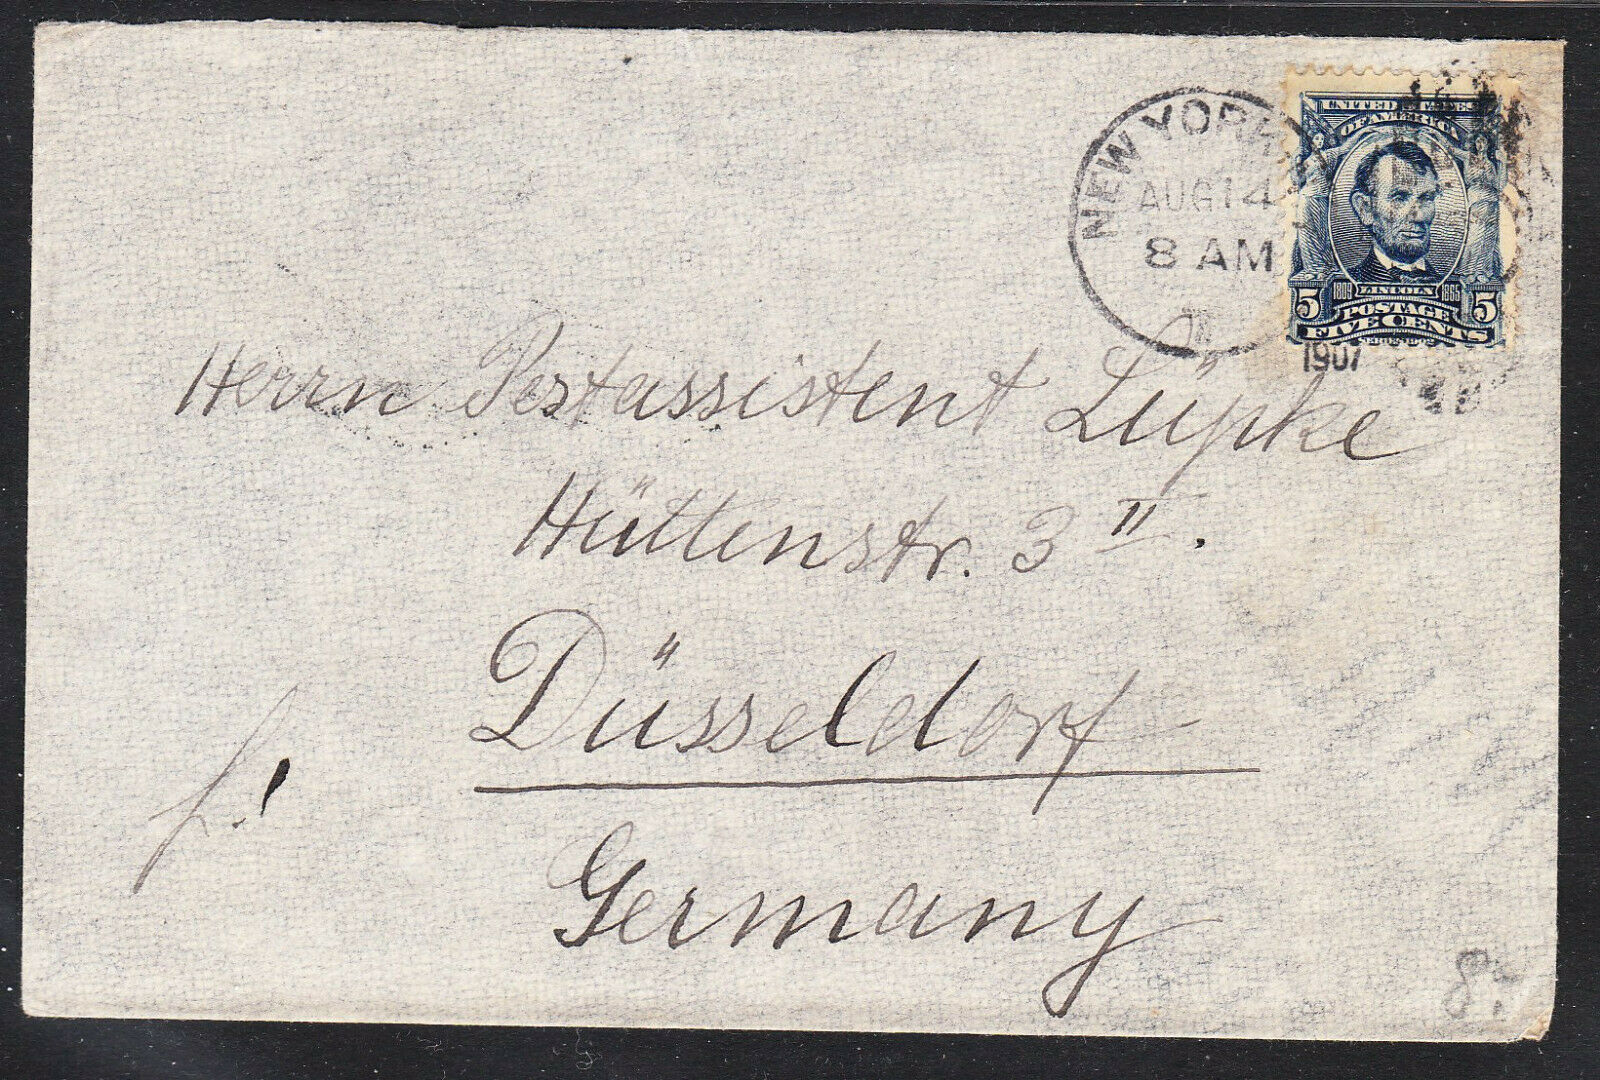 NEW YORK
AUG 14
8 AM
1907
UNITED STATES
OF AMERICA
1809 LINCOLN 1865
5 POSTAGE 5
FIVE CENTS
Herrn Postassistent Lüpke
Hüttenstr. 3 II.
Düsseldorf
Germany